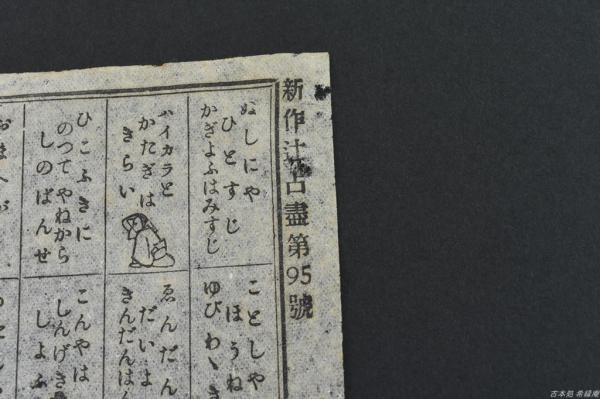 新作辻占盡第95號
ぬしにや
ひとすじ
かぎよふはみすじ
ハイカラと
かたぎは
きらい
ひこふきに
のつてやねから
しのばんせ
おまへが
ことしや
ほうね
ゆびわゝ
ゑんだん
だいよ
きんだんは
こんやは
しんげき
しよふ
古本処